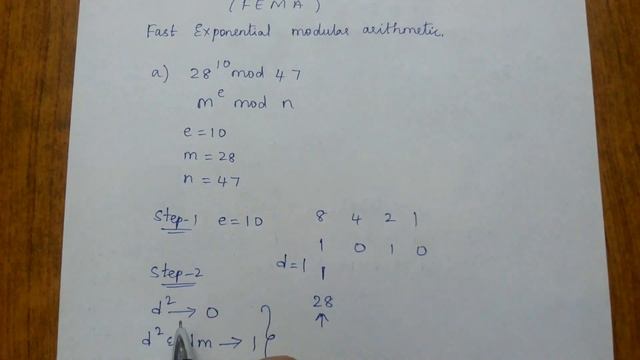 (FEMA)
Fast Exponential modular arithmetic.
a) 28^10 mod 47
m^e mod n
e = 10
m = 28
n = 47
Step-1 e = 10 8 4 2 1
1 0 1 0
d = 1 1
Step-2
d² → 0 28
d² & dm → 1